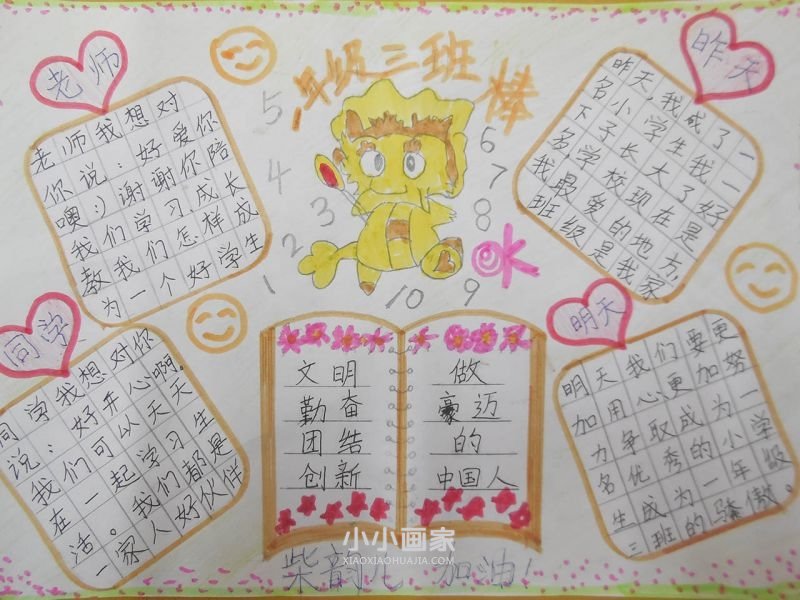 一年级三班棒
老师
老师我想对
你说：好爱你
噢:)谢谢你陪
我们学习,成长
教我们怎样成
为一个好学生
昨天
昨天,我成了一
名小学生我一
下子长大了好
多,学校现在是
我最爱的地方,
班级是我家
5
4
3
2
1
6
7
8
9
10
OK
同学
同学我想对你
说：好开心啊。
我们可以天天
在一起学习生
活。我们都是
一家人好伙伴
文明
勤奋
团结
创新
做
豪迈
的
中国人
明天
明天我们要更
加用心,更加努
力争取成为一
名优秀的小学
生成为一年级
三班的骄傲。
小小画家
XIAOXIAOHUAJIA.COM
柴韵儿 加油!